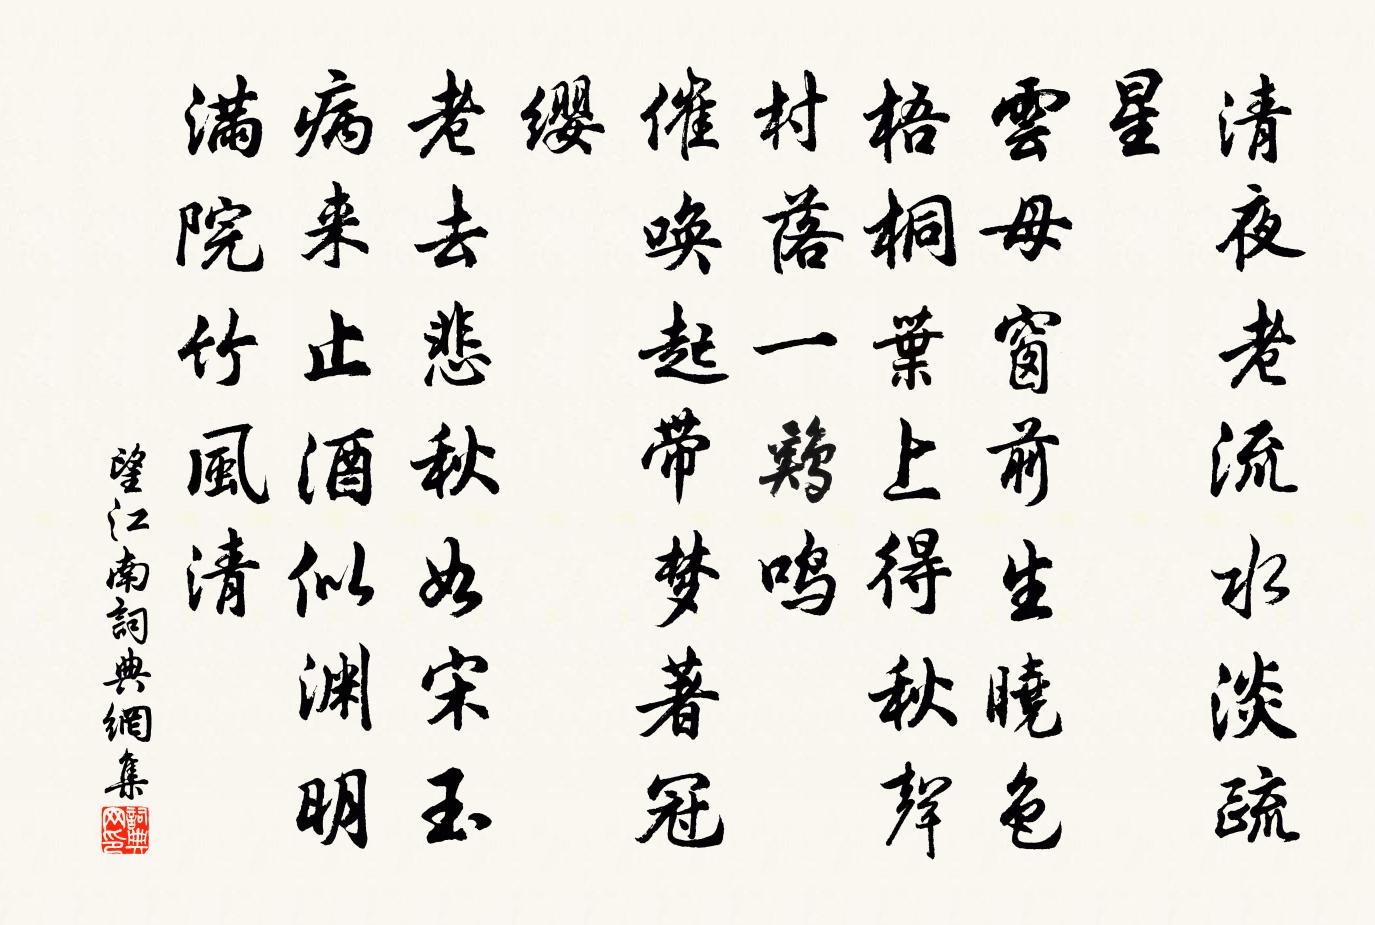 清夜老流水淡疏
星
雲母窗前生曉色
梧桐葉上得秋聲
村落一鶏鸣
催唤起带梦著冠
缨
老去悲秋如宋玉
病来止酒似渊明
满院竹風清
望江南詞典網集
詞典网印